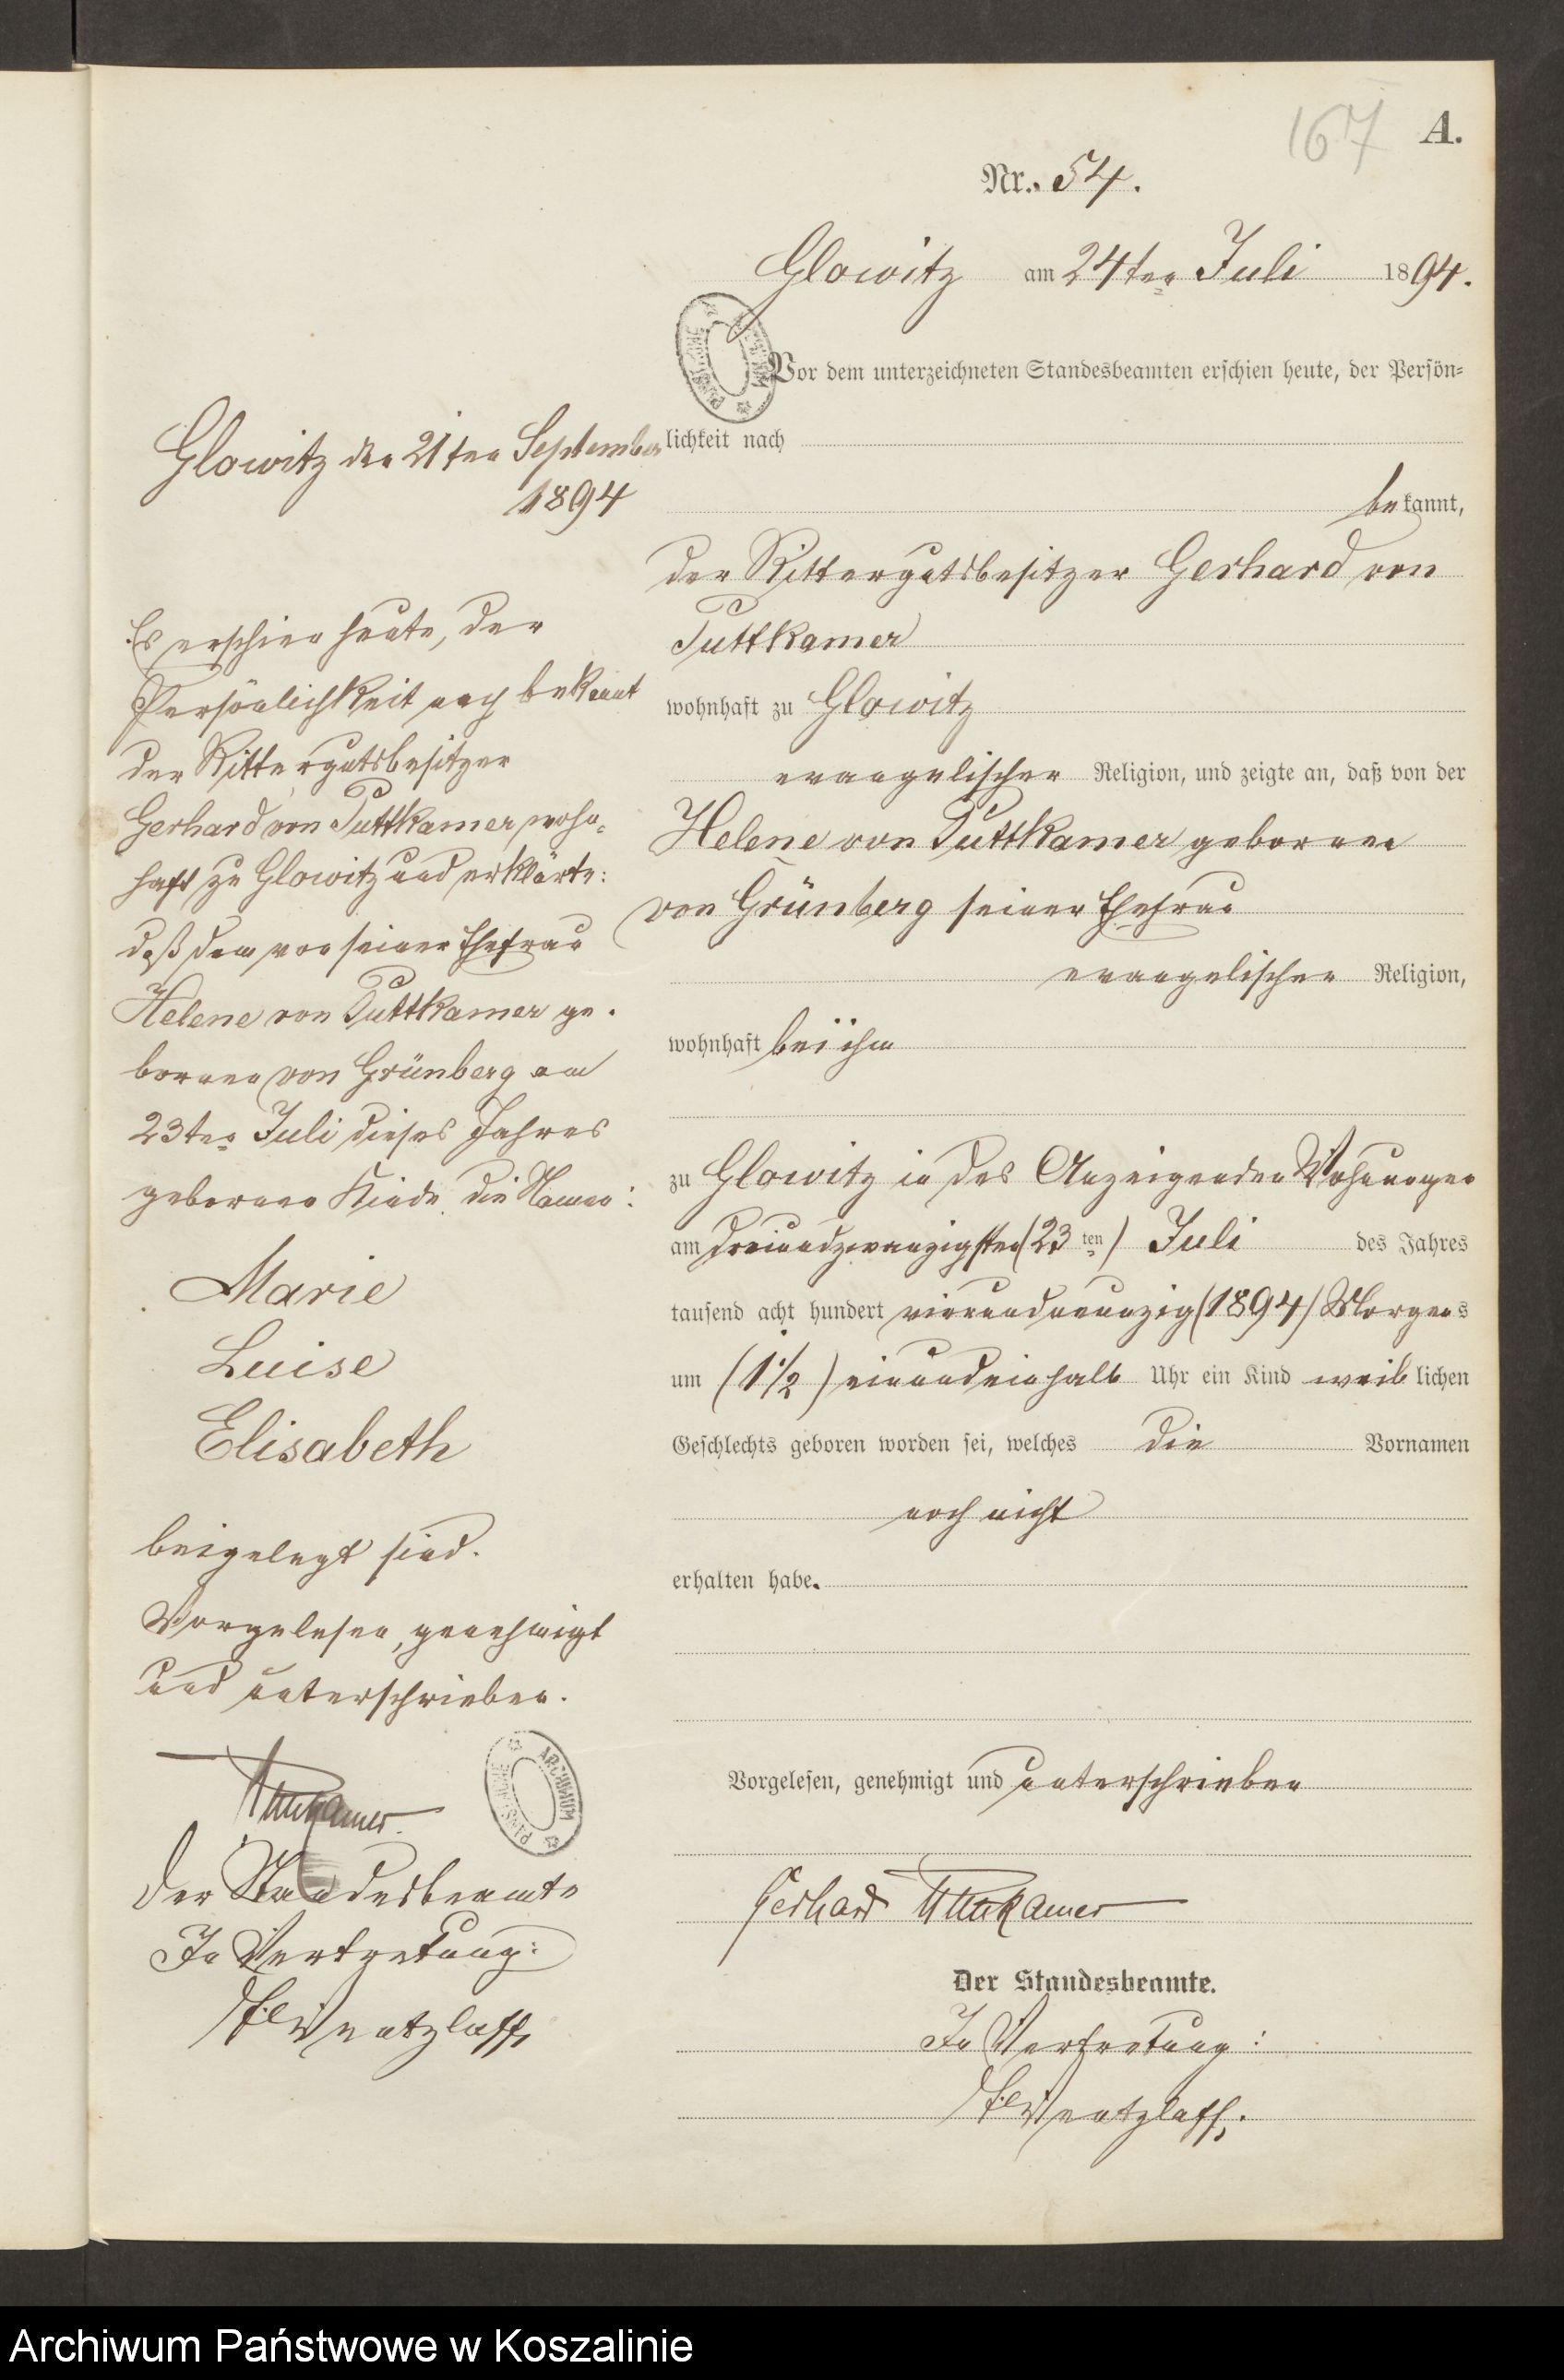 167
A.
Nr. 54.
Glowitz am 24ten Juli 1894.
Vor dem unterzeichneten Standesbeamten erschien heute, der Persön-
lichkeit nach
bekannt,
der Rittergutsbesitzer Gerhard von
Puttkamer
wohnhaft zu Glowitz
evangelischer Religion, und zeigte an, daß von der
Helene von Puttkamer geborenen
von Grünberg seiner Ehefrau
evangelischer Religion,
wohnhaft bei ihm
zu Glowitz in des Anzeigenden Wohnungen
am dreiundzwanzigsten (23ten) Juli des Jahres
tausend acht hundert vierundneunzig (1894) Morgens
um (1 1/2) einundeinhalb Uhr ein Kind weiblichen
Geschlechts geboren worden sei, welches die Vornamen
noch nicht
erhalten habe.
Vorgelesen, genehmigt und unterschrieben
Gerhard Puttkamer
Der Standesbeamte.
In Vertretung:
Wentzlaff.
Glowitz den 21ten September
1894
Es erschien heute, der
Persönlichkeit nach bekannt
der Rittergutsbesitzer
Gerhard von Puttkamer, wohn-
haft zu Glowitz und erklärte:
daß dem von seiner Ehefrau
Helene von Puttkamer ge-
borenen von Grünberg am
23ten Juli dieses Jahres
geborenen Kinde die Namen:
Marie
Luise
Elisabeth
beigelegt sind.
Vorgelesen, genehmigt
und unterschrieben.
Puttkamer.
Der Standesbeamte
In Vertretung:
Wentzlaff.
ARCHIWUM PAŃSTWOWE
Archiwum Państwowe w Koszalinie